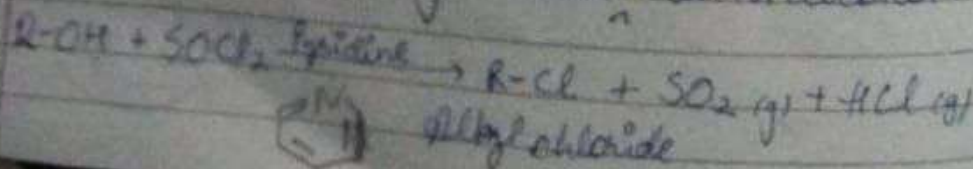 R-OH + SOCl₂ Pyridine → R-Cl + SO₂ (g) + HCl (g)
N Alkyl chloride